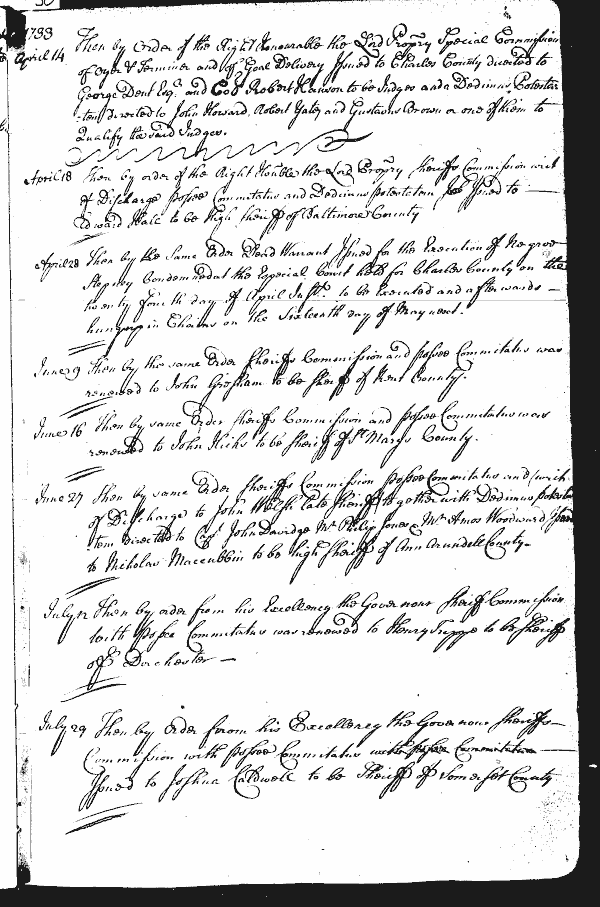 1733
April 14 Then by Order of the Right Honourable the Lord Propry Special Commission
of Oyer & Terminer and of Goal Delivery Issued to Charles County directed to
George Dent Esqr. and Robert Hanson to be Judges and a Dedimus Potesta-
-tem directed to John Howard, Robert Yates and Gustavus Brown or one of them to
Qualify the said Judges.
April 18 Then by order of the Right Honble the Lord Propry Sheriffs Commission writ
of Discharge posse Commitatus and Dedimus potestatem Issued to
Edward Hall to be high sheriff of Baltimore County
April 28 Then by the Same Order Dead Warrant Issued for the Execution of Negroe
Stepney Condemned at the Especial Court held for Charles County on the
twenty fourth day of April Inst. to be Executed and afterwards
hung up in Chains on the Sixteenth day of May next.
June 9 Then by the same Order Sheriffs Commission and possee Commitatus was
renewed to John Gresham to be Sheriff of Kent County.
June 16 Then by same Order Sheriffs Commission and possee Commitatus was
renewed to John Hicks to be Sheriff of St Marys County.
June 27 Then by same Order Sheriffs Commission possee Commitatus and writ
of Discharge to John Welsh late Sheriff together with Dedimus potesta
tem directed to Capt John Davidge Mr Philip Jones & Mr Amos Woodward
to Nicholas Maccubbin to be high Sheriff of Ann Arundell County.
July 12 Then by order from his Excellency the Governour Sheriff Commission
with possee Commitatus was renewed to Henry Trippe to be Sheriff
of Dorchester
July 29 Then by Order from his Excellency the Governour Sheriffs
Commission with possee Commitatus with possee Commitatus
Issued to Joshua Caldwell to be Sheriff of Somerset County